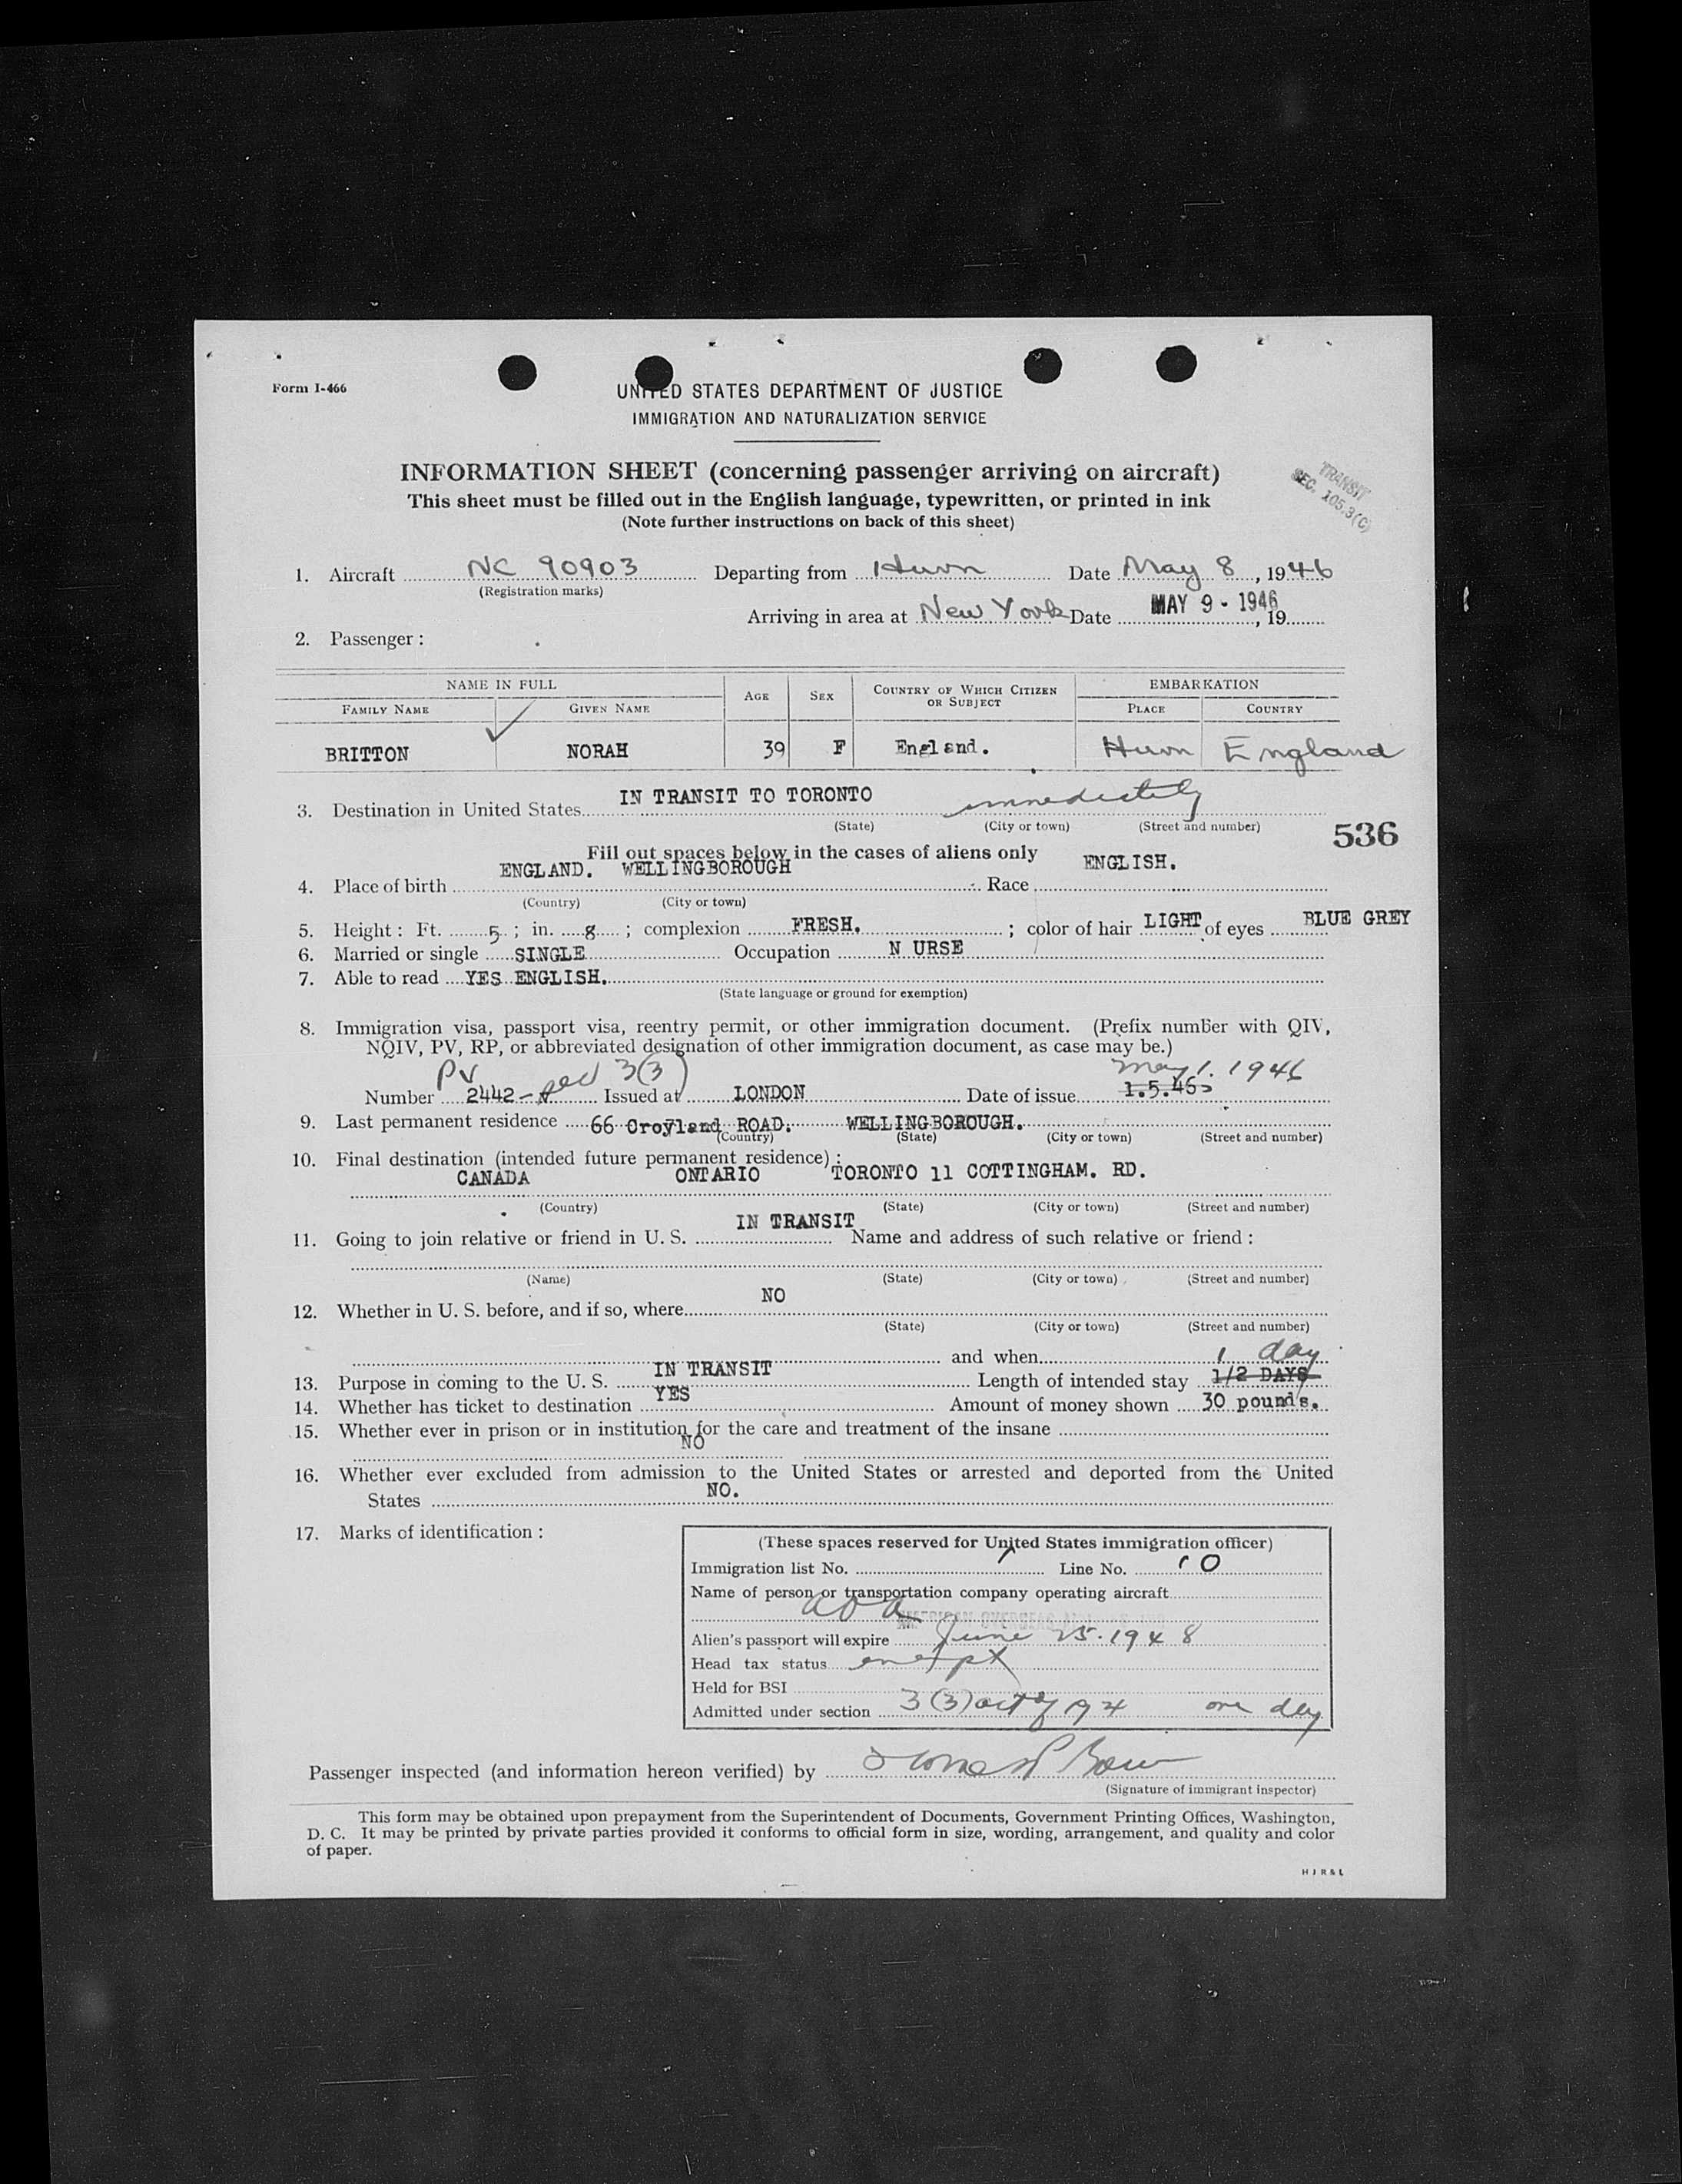 Form I-466
UNITED STATES DEPARTMENT OF JUSTICE
IMMIGRATION AND NATURALIZATION SERVICE
INFORMATION SHEET (concerning passenger arriving on aircraft)
This sheet must be filled out in the English language, typewritten, or printed in ink
(Note further instructions on back of this sheet)
TRANSIT
SEC. 105.3(C)
1. Aircraft NC 90903 Departing from Hurn Date May 8, 1946
(Registration marks)
Arriving in area at New York Date MAY 9 - 1946, 19
2. Passenger:
NAME IN FULL AGE SEX COUNTRY OF WHICH CITIZEN OR SUBJECT EMBARKATION
FAMILY NAME GIVEN NAME PLACE COUNTRY
BRITTON NORAH 39 F England. Hurn England
3. Destination in United States IN TRANSIT TO TORONTO immediately
(State) (City or town) (Street and number)
536
Fill out spaces below in the cases of aliens only
4. Place of birth ENGLAND. WELLINGBOROUGH Race ENGLISH.
(Country) (City or town)
5. Height: Ft. 5; in. 8; complexion FRESH.; color of hair LIGHT of eyes BLUE GREY
6. Married or single SINGLE Occupation N URSE
7. Able to read YES ENGLISH.
(State language or ground for exemption)
8. Immigration visa, passport visa, reentry permit, or other immigration document. (Prefix number with QIV,
NQIV, PV, RP, or abbreviated designation of other immigration document, as case may be.)
PV 3(3) May 1. 1946
Number 2442- Issued at LONDON Date of issue 1.5.46
9. Last permanent residence 66 Croyland ROAD. WELLINGBOROUGH.
(Country) (State) (City or town) (Street and number)
10. Final destination (intended future permanent residence):
CANADA ONTARIO TORONTO 11 COTTINGHAM. RD.
(Country) (State) (City or town) (Street and number)
11. Going to join relative or friend in U. S. IN TRANSIT Name and address of such relative or friend:
(Name) (State) (City or town) (Street and number)
12. Whether in U. S. before, and if so, where NO
(State) (City or town) (Street and number)
and when 1 day
13. Purpose in coming to the U. S. IN TRANSIT Length of intended stay 1/2 DAYS
14. Whether has ticket to destination YES Amount of money shown 30 pounds.
15. Whether ever in prison or in institution for the care and treatment of the insane
NO
16. Whether ever excluded from admission to the United States or arrested and deported from the United
States NO.
17. Marks of identification:
(These spaces reserved for United States immigration officer)
Immigration list No. 1 Line No. 10
Name of person or transportation company operating aircraft
AOA AMERICAN OVERSEAS
Alien's passport will expire June 25. 1948
Head tax status exempt
Held for BSI
Admitted under section 3(3) act of 1924 one day
Passenger inspected (and information hereon verified) by
(Signature of immigrant inspector)
This form may be obtained upon prepayment from the Superintendent of Documents, Government Printing Offices, Washington,
D. C. It may be printed by private parties provided it conforms to official form in size, wording, arrangement, and quality and color
of paper.
HJR&L